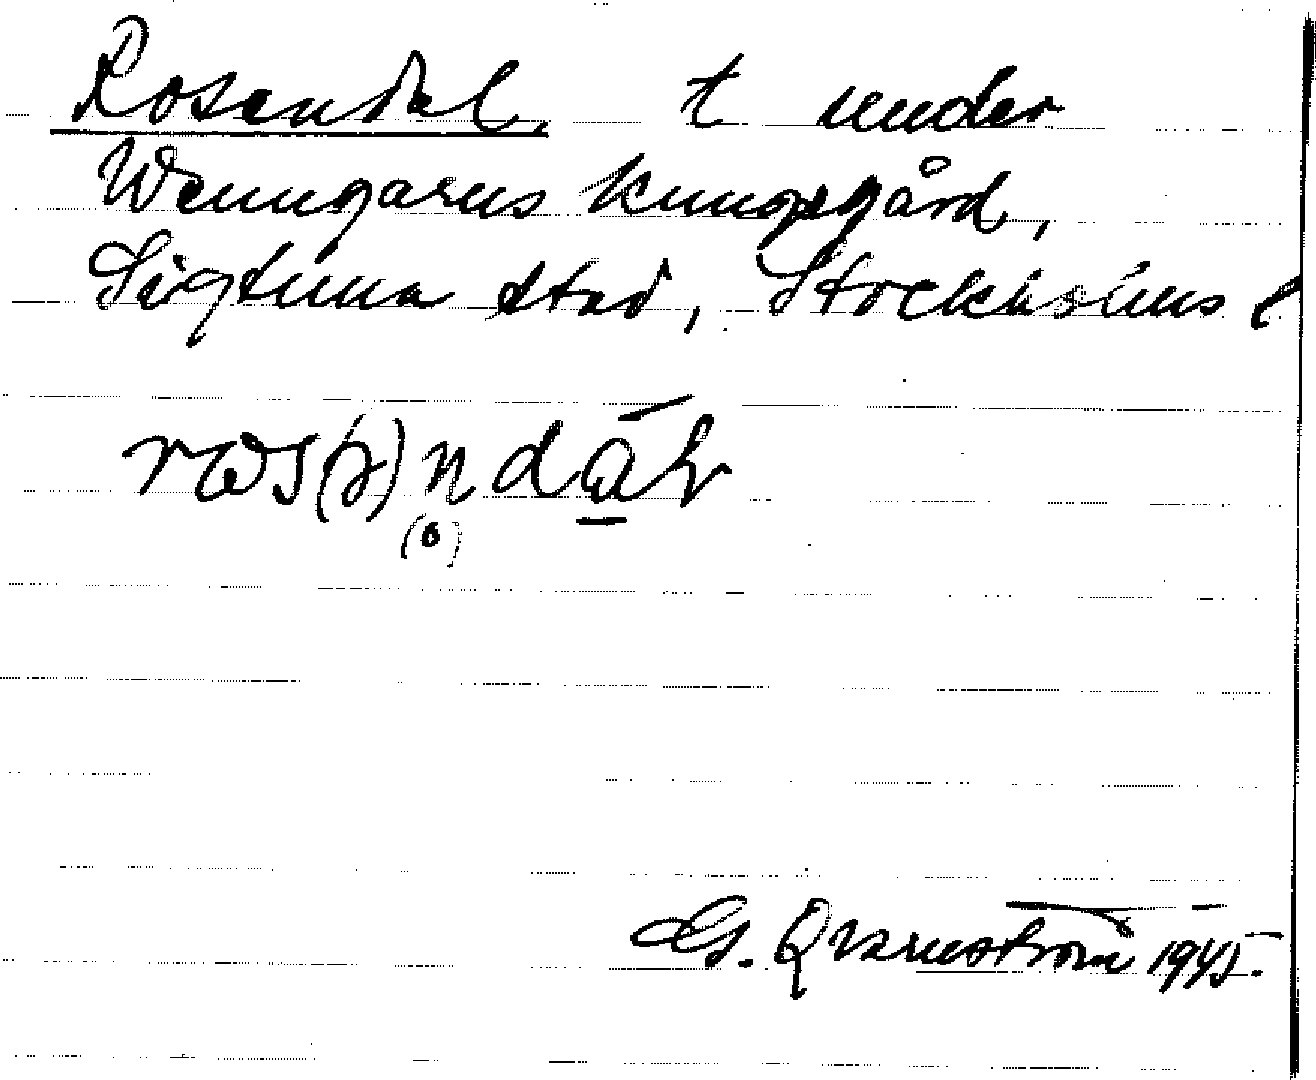 Rosendal, t under
Wenngarns kungsgård,
Sigtuna stad, Stockholms l
G. Qvarnström 1945.